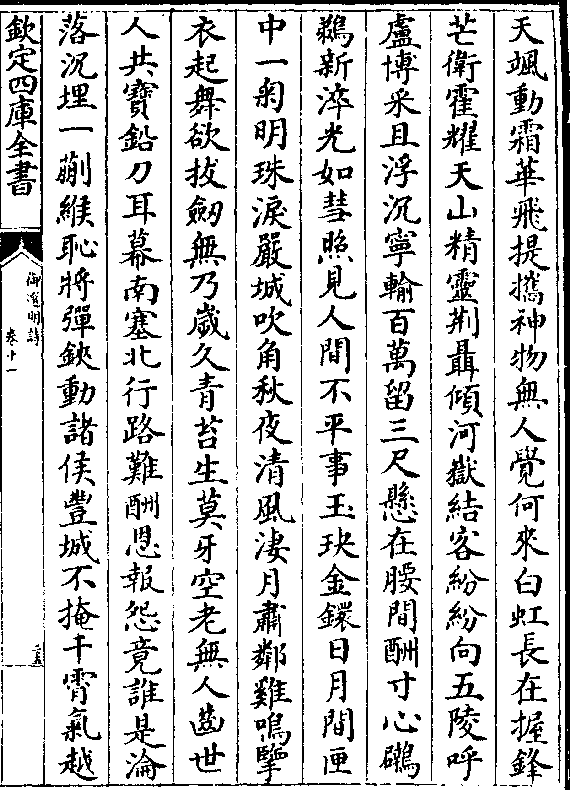 天颯動霜華飛提攜神物無人覺何來白虹長在握鋒
芒衛霍耀天山精靈荆聶傾河嶽結客紛紛向五陵呼
盧博采且浮沉寧輸百萬留三尺懸在腰間酬寸心鸊
鵜新淬光如彗照見人間不平事玉玦金鐶日月間匣
中一匊明珠淚嚴城吹角秋夜清風淒月肅鄰雞鳴擥
衣起舞欲拔劒無乃歲久青苔生莫牙空老無人齒世
人共寶鉛刀耳幕南塞北行路難酬恩報怨竟誰是淪
落沉埋一蒯緱恥將彈鋏動諸侯豐城不掩干霄氣越
欽定四庫全書
御選明詩
卷十一